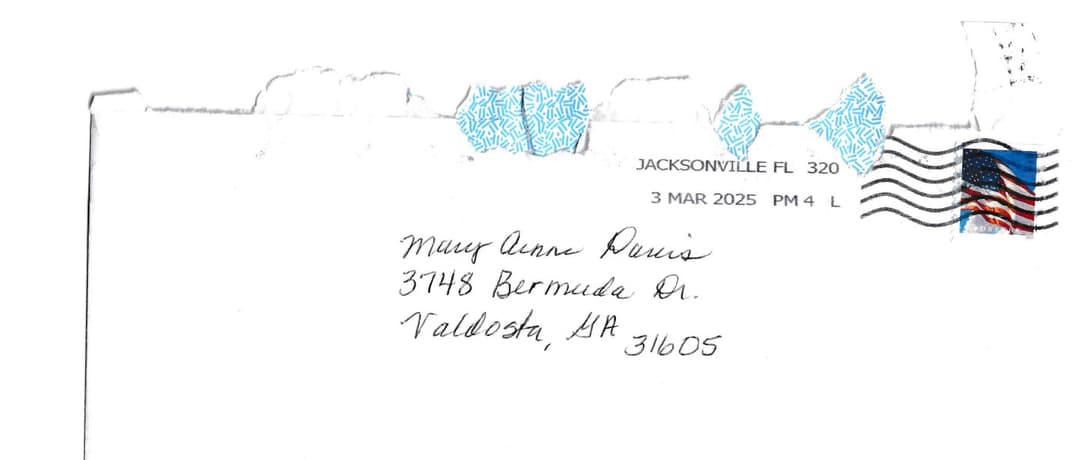 JACKSONVILLE FL 320
3 MAR 2025 PM 4 L
Mary Anne Davis
3748 Bermuda Dr.
Valdosta, GA 31605